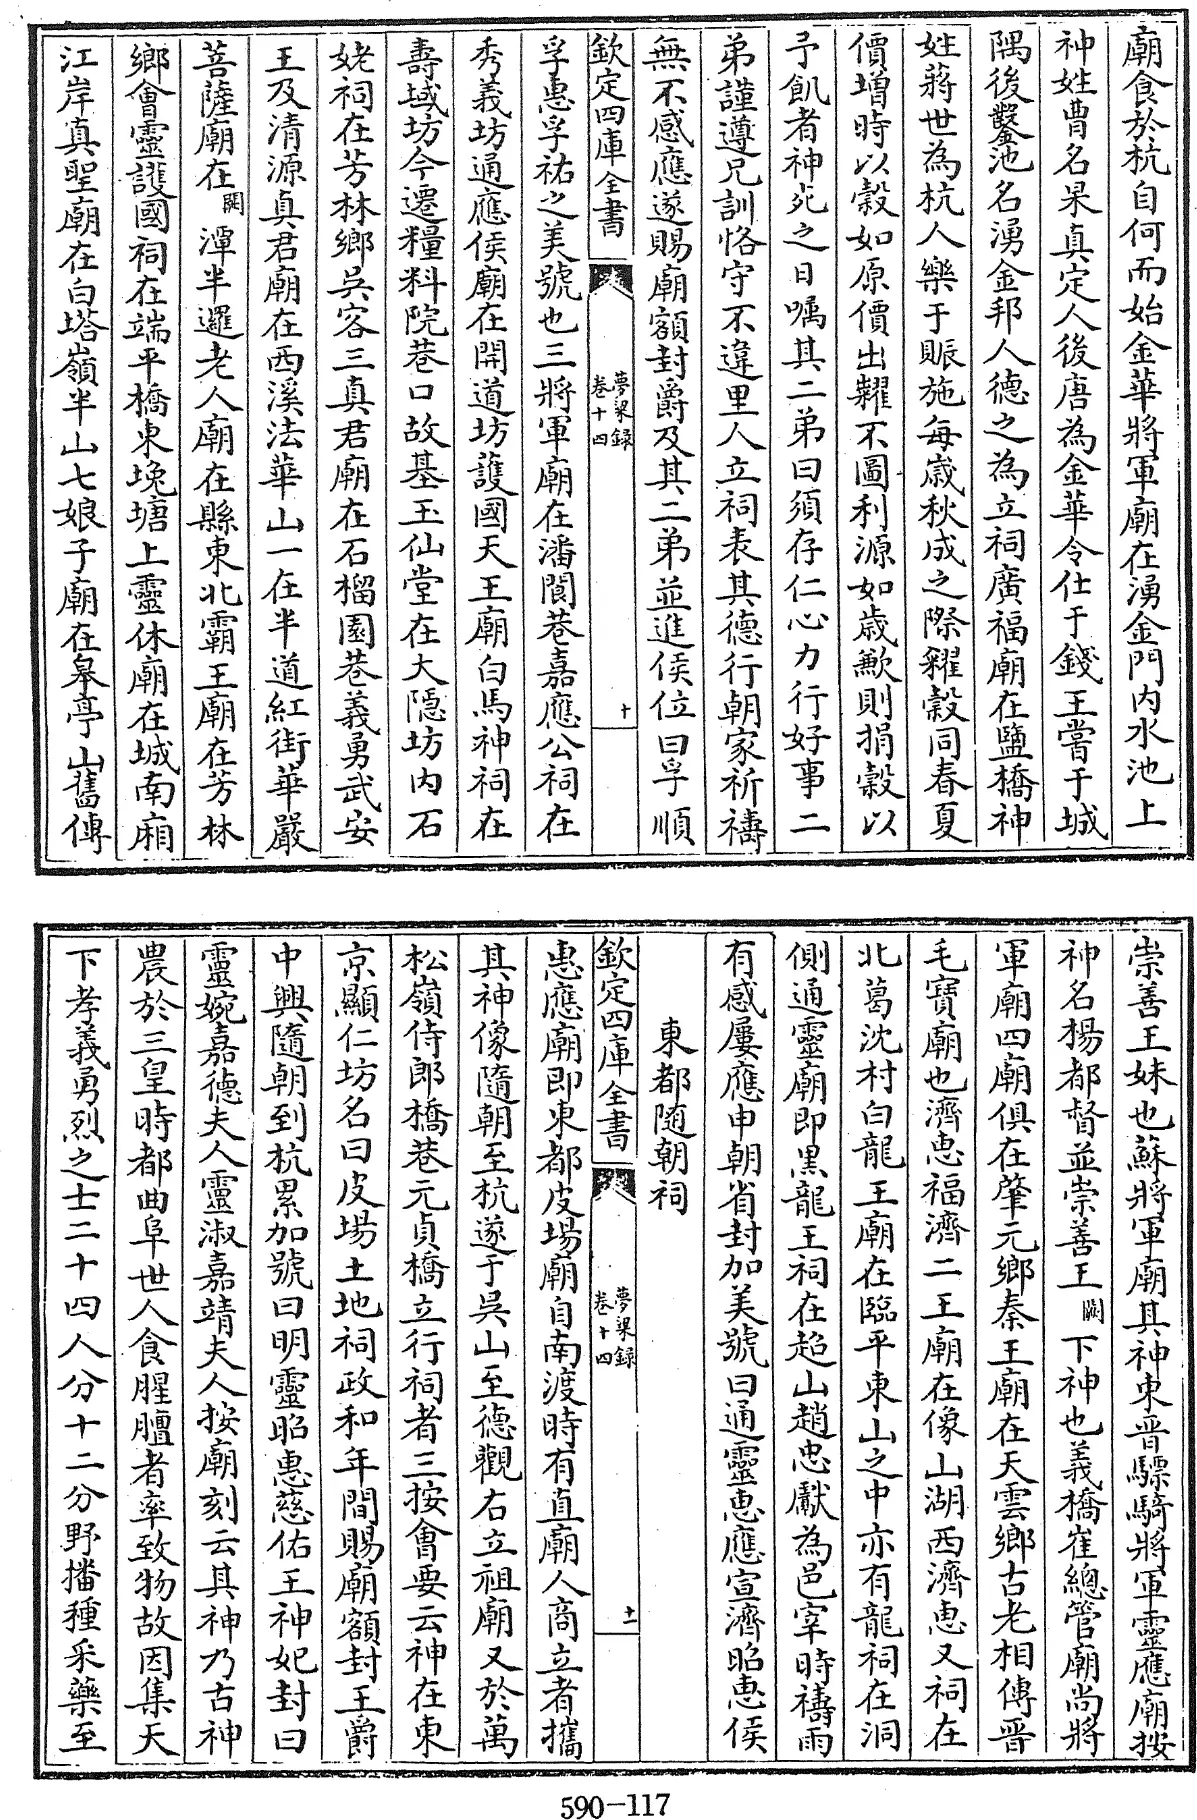 廟食於杭自何而始金華將軍廟在湧金門内水池上
神姓曹名杲真定人後唐為金華令仕于錢王嘗于城
隅後鑿池名湧金邦人德之為立祠廣福廟在鹽橋神
姓蔣世為杭人樂于賑施每歲秋成之際糴穀同春夏
價增時以穀如原價出糶不圖利源如歲歉則捐穀以
予飢者神死之日囑其二弟曰須存仁心力行好事二
弟謹遵兄訓恪守不違里人立祠表其德行朝家祈禱
無不感應遂賜廟額封爵及其二弟並進侯位曰孚順
欽定四庫全書
夢粱錄
卷十四
十
孚惠孚祐之美號也三將軍廟在潘閬巷嘉應公祠在
秀義坊通應侯廟在開道坊護國天王廟白馬神祠在
壽域坊今遷糧料院巷口故基玉仙堂在大隱坊内石
姥祠在芳林鄉吳客三真君廟在石榴園巷義勇武安
王及清源真君廟在西溪法華山一在半道紅街華嚴
菩薩廟在闕潭半邏老人廟在縣東北霸王廟在芳林
鄉會靈護國祠在端平橋東堍塘上靈休廟在城南廂
江岸真聖廟在白塔嶺半山七娘子廟在皋亭山舊傳
崇善王妹也蘇將軍廟其神東晉驃騎將軍靈應廟按
神名楊都督並崇善王闕下神也義橋崔總管廟尚將
軍廟四廟俱在肇元鄉秦王廟在天雲鄉古老相傳晉
毛寶廟也濟惠福濟二王廟在像山湖西濟惠又祠在
北葛沈村白龍王廟在臨平東山之中亦有龍祠在洞
側通靈廟即黑龍王祠在超山趙忠獻為邑宰時禱雨
有感屢應申朝省封加美號曰通靈惠應宣濟昭惠侯
東都隨朝祠
欽定四庫全書
夢粱錄
卷十四
十一
惠應廟即東都皮場廟自南渡時有直廟人商立者攜
其神像隨朝至杭遂于吳山至德觀右立祖廟又於萬
松嶺侍郎橋巷元貞橋立行祠者三按會要云神在東
京顯仁坊名曰皮場土地祠政和年間賜廟額封王爵
中興隨朝到杭累加號曰明靈昭惠慈佑王神妃封曰
靈婉嘉德夫人靈淑嘉靖夫人按廟刻云其神乃古神
農於三皇時都曲阜世人食腥膻者率致物故因集天
下孝義勇烈之士二十四人分十二分野播種采藥至
590-117